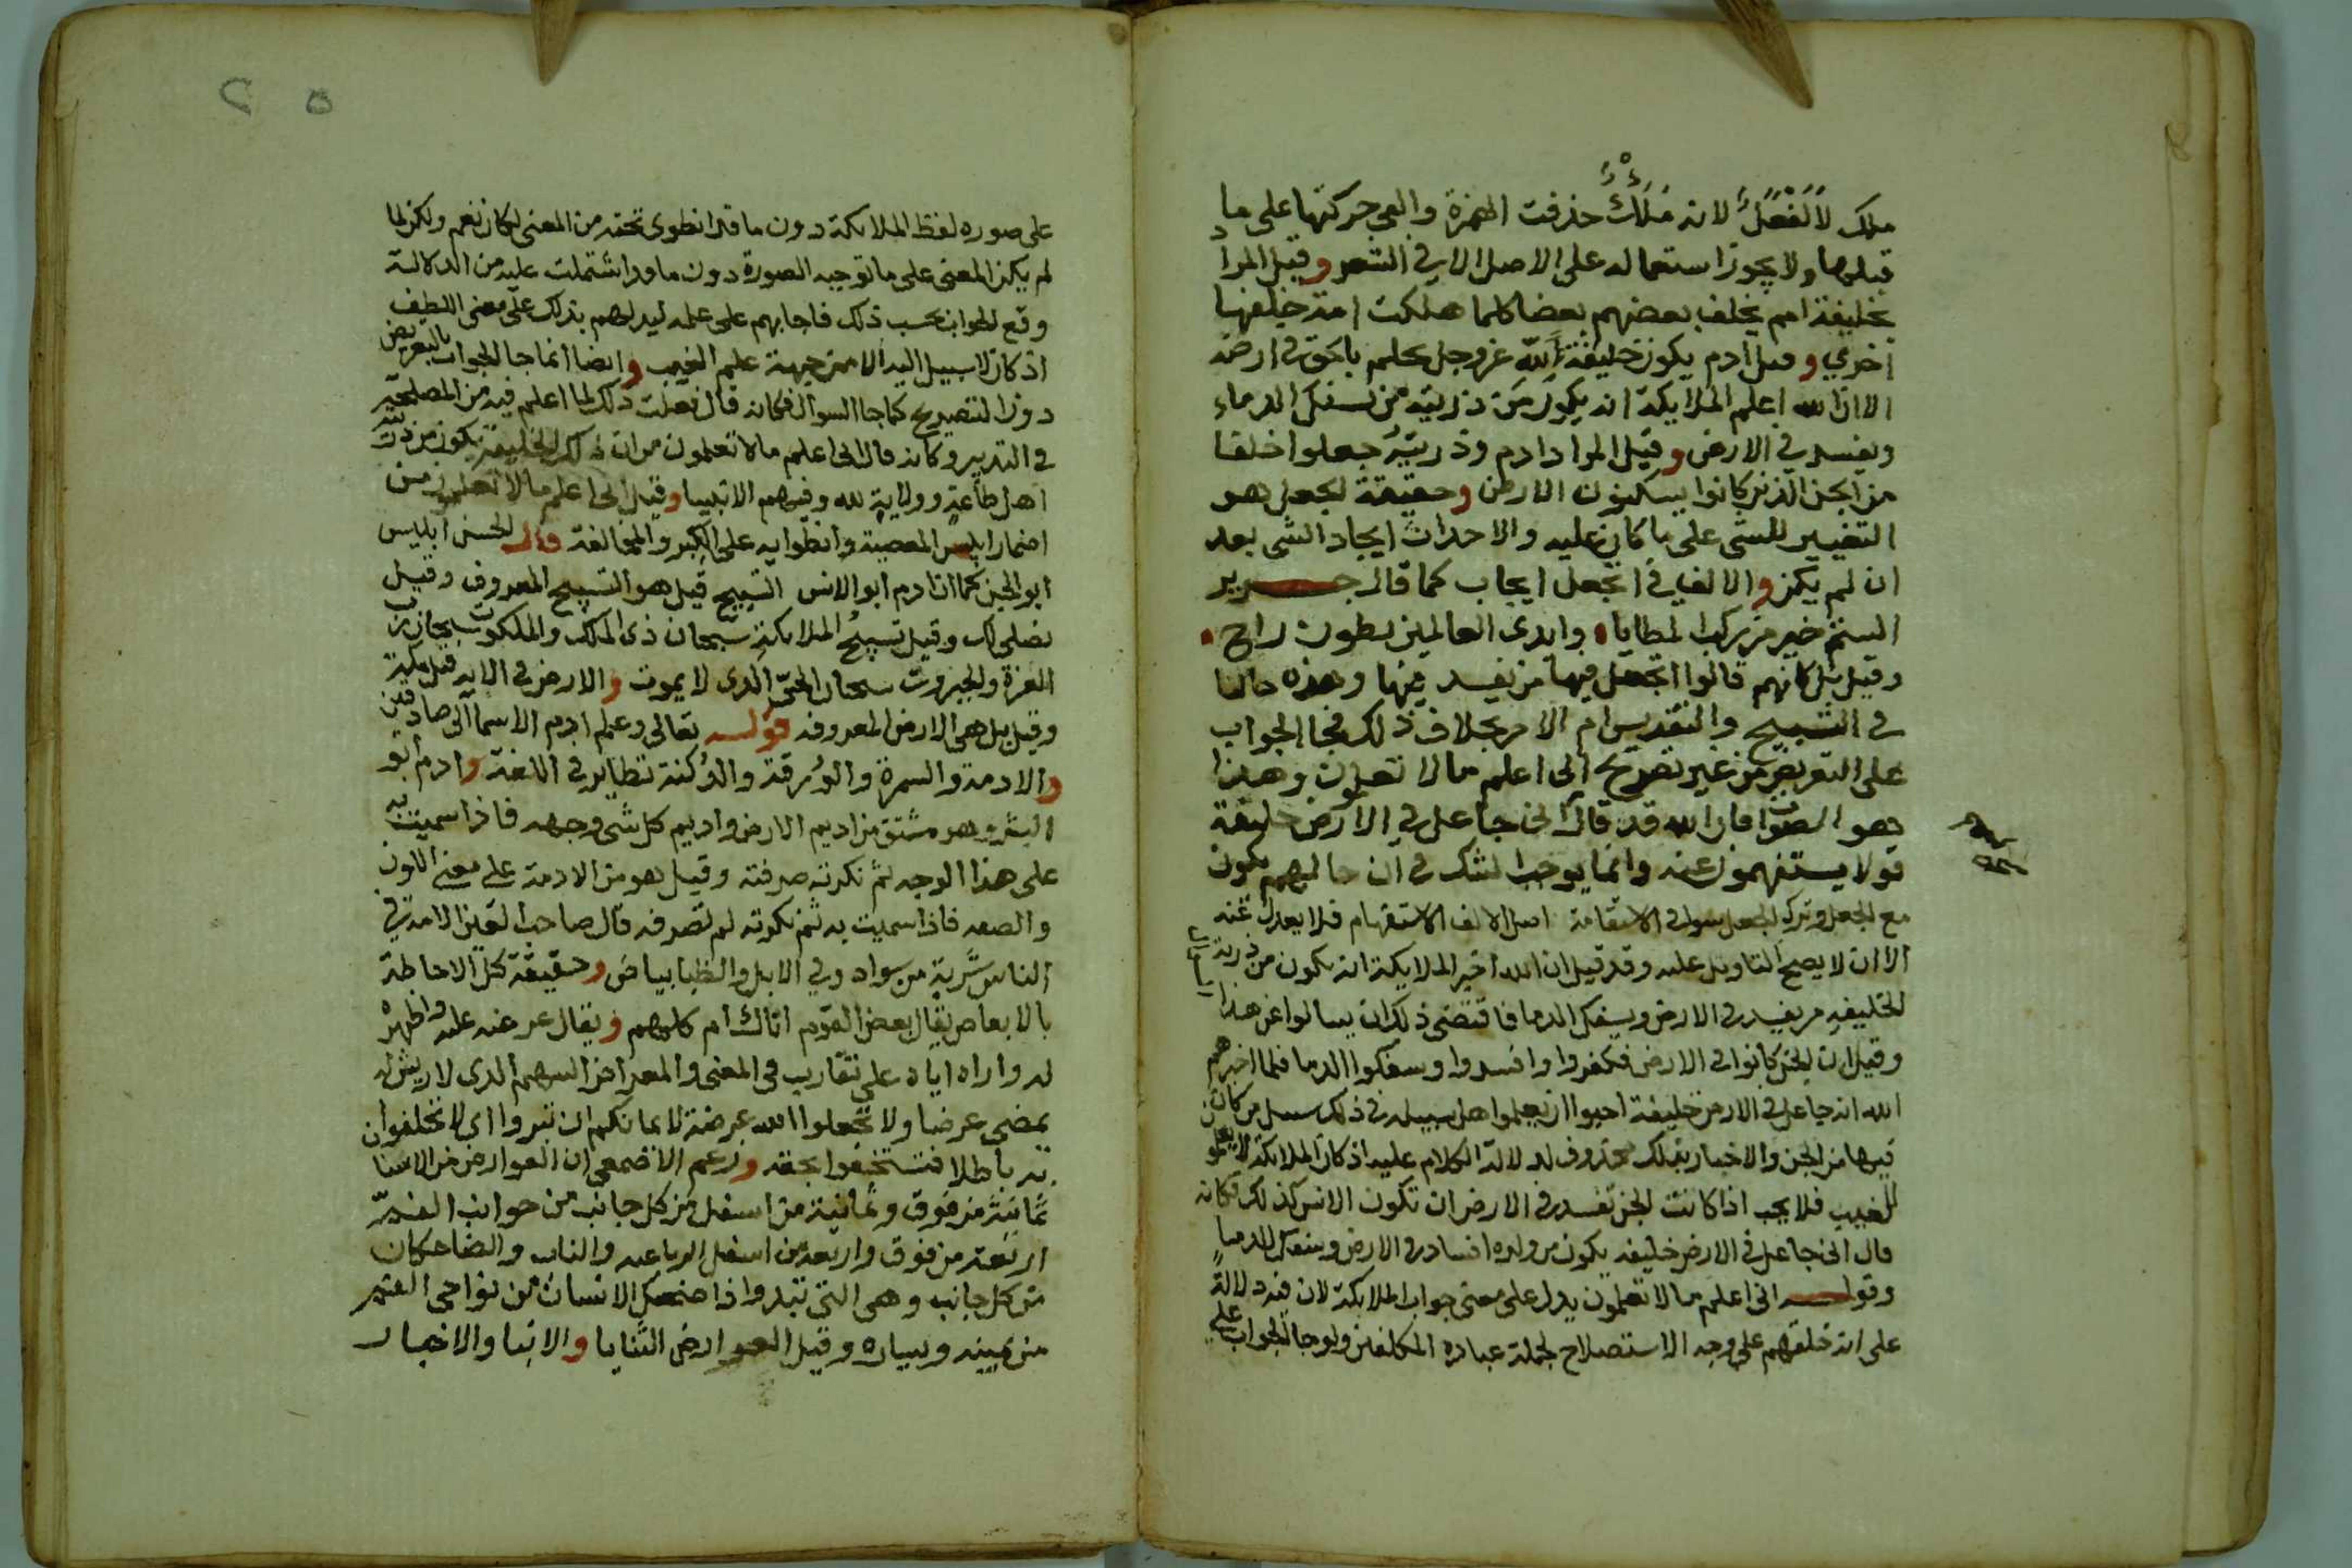 ملك لا لفعل لانه ملاك حذفت الهمزة والقي حركتها على ما
قبلها ولا يجوز استعماله على الاصل الا في الشعر وقيل المراد
بخليفة امم يخلف بعضهم بعضا كلما هلكت امة خلفتها
اخري وقيل ادم يكون خليفة لله عز وجل يحكم بالحق في ارضه
الا ان الله اعلم الملايكة انه يكون من ذريته من يسفك الدماء
ويفسد في الارض وقيل المراد ادم وذريته جعلوا خلفا
من الجن الذين كانوا يسكنون الارض وحقيقة الجعل هو
التغيير للشى على ما كان عليه والاحداث ايجاد الشى بعد
ان لم يكن والالف في اتجعل ايجاب كما قال جرير
الستم خير من ركب المطايا واندى العالمين بطون راح
وقيل بل كانهم قالوا اتجعل فيها من يفسد فيها وهذه حالنا
في التسبيح والتقديس ام الامر بخلاف ذلك فجا الجواب
على التعريض من غير تصريح انى اعلم ما لا تعلمون وهذا
هو الصواب فان الله قد قال انى جاعل في الارض خليفة
فولا يستفهمون عنه وانما يوجب الشك في ان حالهم يكون
مع الجعل وترك الجعل سوا في الاستقامة اصل الالف الاستفهام فلا يعدل عنه
الا ان لا يصح التاويل عليه وقد قيل ان الله اخبر الملايكة انه يكون من ذرية
الخليفة من يفسد في الارض ويسفك الدما فاقتضى ذلك ان يسالوا عن هذا
وقيل ان الجن كانوا في الارض فكفروا وافسدوا وسفكوا الدما فلما اخبرهم
الله انه جاعل في الارض خليفة احبوا ان يعلموا هل سبيله في ذلك سبيل من كان
فيها من الجن والاخبار بذلك محذوف لدلالة الكلام عليه اذ كان الملايكة لا يعلمون
الغيب فلا يجب اذا كانت الجن تفسد في الارض ان تكون الانس كذلك فكانه
قال انى جاعل في الارض خليفه يكون من ولده افساد في الارض ويسفك الدما
وقوله انى اعلم ما لا تعلمون يدل على معنى جواب الملايكة لان فيه دلالة
على انه خلقهم على وجه الاستصلاح لجملة عباده المكلفين ولو جا الجواب على
على صوره لفظ الملايكة دون ما قد انطوى تحته من المعنى لكان نعم ولكن لما
لم يكن المعنى على ما توجبه الصورة دون ما قد اشتملت عليه من الدلالة
وقع الجواب بحسب ذلك فاجابهم على علمه ليدلهم بذلك على معنى اللطيف
اذ كان لا سبيل اليه الا من جهة علم الغيب وايضا انما جا الجواب بالتعريض
دون التصريح كما جا السوال فكانه قال فعلت ذلك لما اعلم فيه من المصلحة
في التدبير وكانه قال انى اعلم ما لا تعلمون من ان ذلك الخليفة يكون من ذريته
اهل طاعة وولاية لله وفيهم الانبيا وقيل انى اعلم ما لا تعلمون من
اضمار ابليس المعصية وانطوايه على الكبر والمخالفة قال الحسن ابليس
ابو الجن كما ان ادم ابو الانس التسبيح قيل هو التسبيح المعروف وقيل
نصلى لك وقيل تسبيح الملايكة سبحان ذى الملك والملكوت سبحان رب
العزة والجبروت سبحان الحى الذى لا يموت والارض في الايه قيل مكية
وقيل بل هى الارض المعروفه قوله تعالى وعلم ادم الاسما الى صادقين
والادمة والسمرة والورقة والدكنة نظاير في اللغة وادم ابو
البشر وهو مشتق من اديم الارض واديم كل شى وجهه فاذا سميت به
على هذا الوجه ثم نكرته صرفته وقيل هو من الادمة على معنى اللون
والصفه فاذا سميت به ثم نكرته لم تصرفه قال صاحب العين الادمة في
الناس شربة من سواد وفي الابل والظبا بياض وحقيقة كل الاحاطة
بالابعاض يقال بعض القوم اتاك ام كلهم ويقال عرضه عليه واظهره
له واراه اياه على تقارب في المعنى والمعراض السهم الذى لا ريش له
يمضى عرضا ولا تجعلوا الله عرضة لايمانكم ان تبروا اى لا تحلفوا
به باطلا فتستخفوا بحقه وزعم الاصمعى ان العوارض من الاسنان
ثمانية من فوق وثمانية من اسفل من كل جانب من جوانب الفم
اربعة من فوق واربعة من اسفل الرباعيه والناب والضاحكان
من كل جانب وهى التي تبدوا اذا ضحك الانسان من نواحى الفم
من يمينه ويساره وقيل العوارض الثنايا والانبا والاخبار